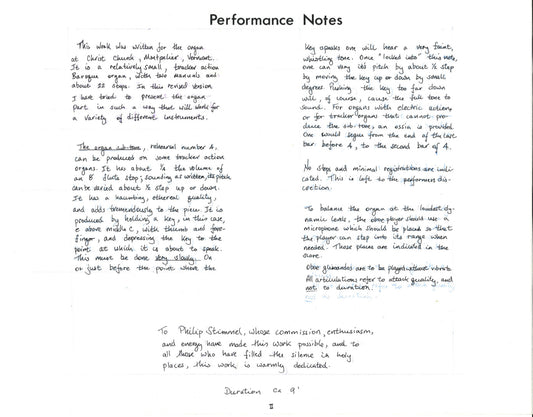 Performance Notes
This work was written for the organ
at Christ Church, Montpelier, Vermont.
It is a relatively small, tracker action
Baroque organ, with two manuals and
about 22 stops. In this revised version
I have tried to present the organ
part in such a way that will work for
a variety of different instruments.
The organ sub-tone, rehearsal number 4,
can be produced on some tracker action
organs. It has about ¼ the volume of
an 8' flute stop; sounding as written, its pitch
can be varied about ½ step up or down.
It has a haunting, ethereal quality,
and adds tremendously to the piece. It is
produced by holding a key, in this case,
e above middle C, with thumb and fore-
finger, and depressing the key to the
point at which it is about to speak.
This must be done very slowly. On
or just before the point where the
key speaks one will hear a very faint,
whistling tone. Once "locked into" this note,
one can vary its pitch by about ½ step
by moving the key up or down by small
degrees. Pushing the key too far down
will, of course, cause the full tone to
sound. For organs with electric actions,
or for tracker organs that cannot pro-
duce the sub-tone, an ossia is provided.
One would segue from the end of the
bar before 4, to the second bar of 4.
No stops and minimal registrations are indi-
cated. This is left to the performers dis-
cretion.
To balance the organ at the loudest dy-
namic levels, the oboe player should use a
microphone which should be placed so that
the player can step into its range when
needed. Those places are indicated in the
score.
Oboe glissandos are to be played without vibrato.
All articulations refer to attack quality, and
not to duration.
To Philip Stimmel, whose commission, enthusiasm,
and energy have made this work possible, and to
all those who have filled the silence in holy
places, this work is warmly dedicated.
Duration ca 9'
II